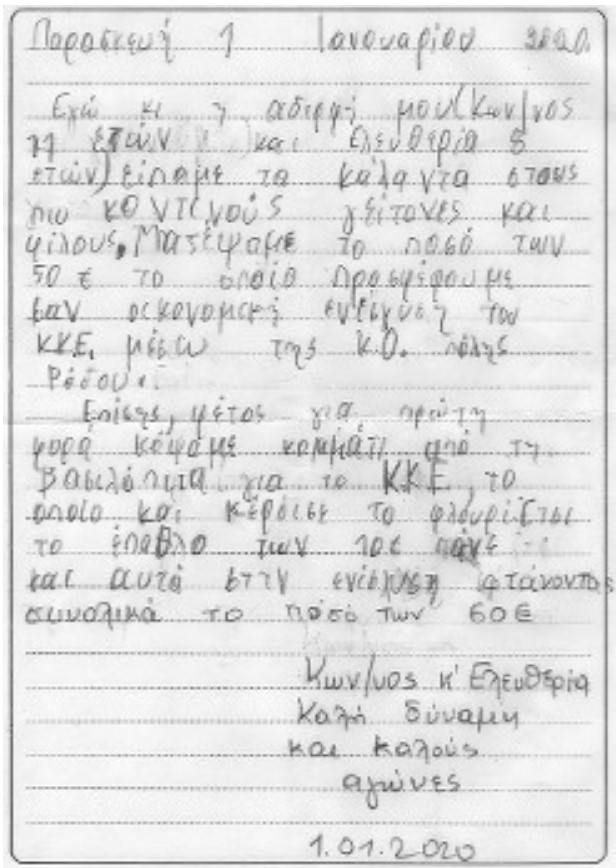 Παρασκευή 1 Ιανουαρίου 2020.
Εγώ κι η αδερφή μου (Κων/νος
11 ετών και Ελευθερία 8
ετών) είπαμε τα κάλαντα στους
πιο κοντινούς γείτονες και
φίλους. Μαζέψαμε το ποσό των
50 € το οποίο προσφέρουμε
σαν οικονομική ενίσχυση του
ΚΚΕ, μέσω της Κ.Ο. πόλης
Ρόδου.
Επίσης, φέτος για πρώτη
φορά κόψαμε κομμάτι από τη
βασιλόπιτα για το ΚΚΕ, το
οποίο και κέρδισε το φλουρί. Έτσι
το έπαθλο των 10€ πάνε
και αυτά στην ενίσχυση φτάνοντας
συνολικά το ποσό των 60€
Κων/νος κ' Ελευθερία
Καλή δύναμη
και καλούς
αγώνες
1.01.2020